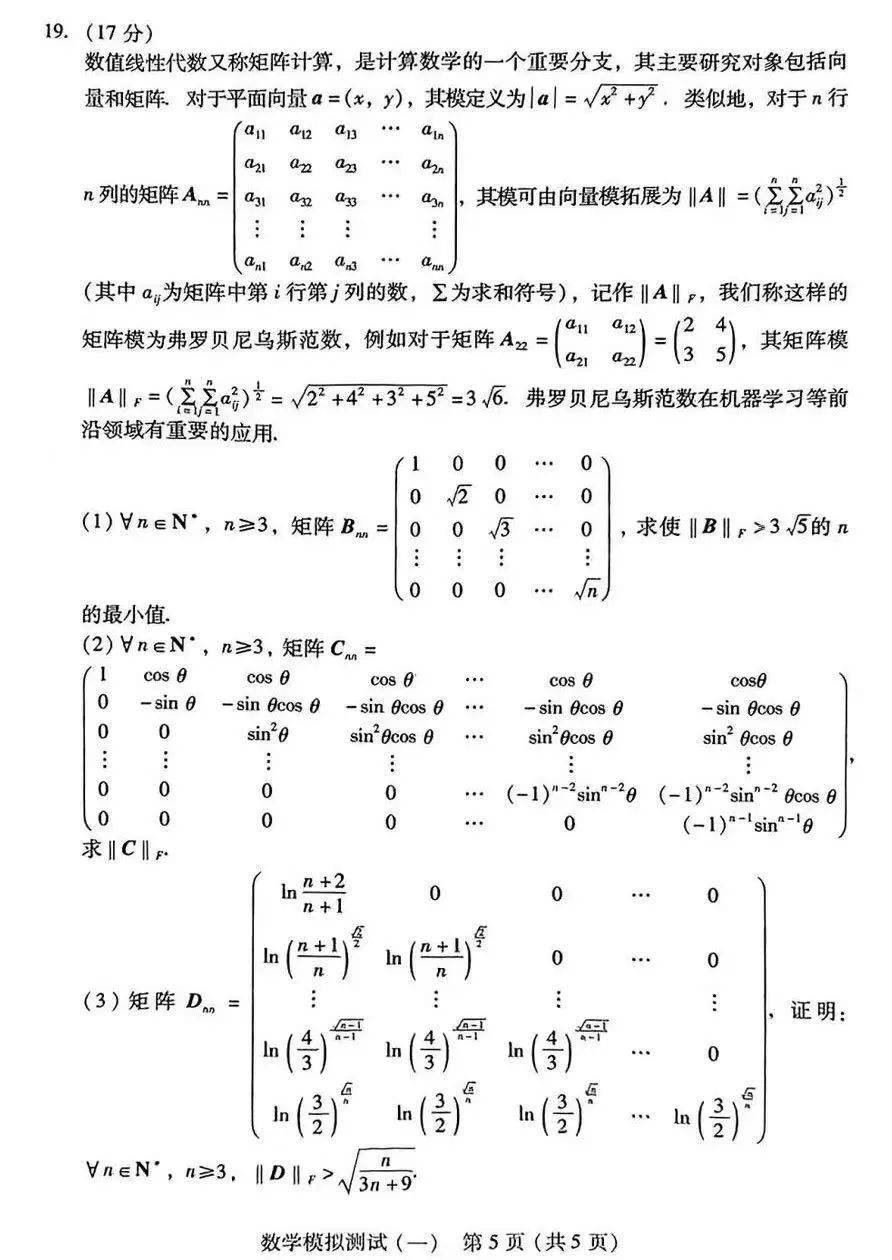 19. (17 分)
数值线性代数又称矩阵计算，是计算数学的一个重要分支，其主要研究对象包括向
量和矩阵. 对于平面向量 a = (x, y)，其模定义为|a| = √(x² + y²) . 类似地，对于 n 行
n 列的矩阵 Aₙₙ = ( a₁₁ a₁₂ a₁₃ ⋯ a₁ₙ
a₂₁ a₂₂ a₂₃ ⋯ a₂ₙ
a₃₁ a₃₂ a₃₃ ⋯ a₃ₙ
⋮ ⋮ ⋮ ⋮
aₙ₁ aₙ₂ aₙ₃ ⋯ aₙₙ )，其模可由向量模拓展为 ‖A‖ = (∑ᵢ₌₁ⁿ ∑ⱼ₌₁ⁿ aᵢⱼ²)^(1/2)
(其中 aᵢⱼ为矩阵中第 i 行第 j 列的数，∑为求和符号)，记作 ‖A‖ F，我们称这样的
矩阵模为弗罗贝尼乌斯范数，例如对于矩阵 A₂₂ = ( a₁₁ a₁₂ ; a₂₁ a₂₂ ) = ( 2 4 ; 3 5 )，其矩阵模
‖A‖ F = (∑ᵢ₌₁ⁿ ∑ⱼ₌₁ⁿ aᵢⱼ²)^(1/2) = √(2² + 4² + 3² + 5²) = 3√6. 弗罗贝尼乌斯范数在机器学习等前
沿领域有重要的应用.
(1) ∀n∈N*，n≥3，矩阵 Bₙₙ = ( 1 0 0 ⋯ 0
0 √2 0 ⋯ 0
0 0 √3 ⋯ 0
⋮ ⋮ ⋮ ⋮
0 0 0 ⋯ √n )，求使 ‖B‖ F > 3√5的 n
的最小值.
(2) ∀n∈N*，n≥3，矩阵 Cₙₙ =
( 1 cos θ cos θ cos θ ⋯ cos θ cosθ
0 -sin θ -sin θcos θ -sin θcos θ ⋯ -sin θcos θ -sin θcos θ
0 0 sin²θ sin²θcos θ ⋯ sin²θcos θ sin² θcos θ
⋮ ⋮ ⋮ ⋮ ⋮ ⋮
0 0 0 0 ⋯ (-1)ⁿ⁻²sinⁿ⁻²θ (-1)ⁿ⁻²sinⁿ⁻² θcos θ
0 0 0 0 ⋯ 0 (-1)ⁿ⁻¹sinⁿ⁻¹θ )，
求 ‖C‖ F.
(3) 矩阵 Dₙₙ = ( ln (n+2)/(n+1) 0 0 ⋯ 0
ln((n+1)/n)^(√2/2) ln((n+1)/n)^(√2/2) 0 ⋯ 0
⋮ ⋮ ⋮ ⋮
ln(4/3)^(√(n-1)/(n-1)) ln(4/3)^(√(n-1)/(n-1)) ln(4/3)^(√(n-1)/(n-1)) ⋯ 0
ln(3/2)^(√n/n) ln(3/2)^(√n/n) ln(3/2)^(√n/n) ⋯ ln(3/2)^(√n/n) )，证明：
∀n∈N*，n≥3，‖D‖ F > √(n/(3n+9)).
数学模拟测试(一) 第 5 页 (共 5 页)